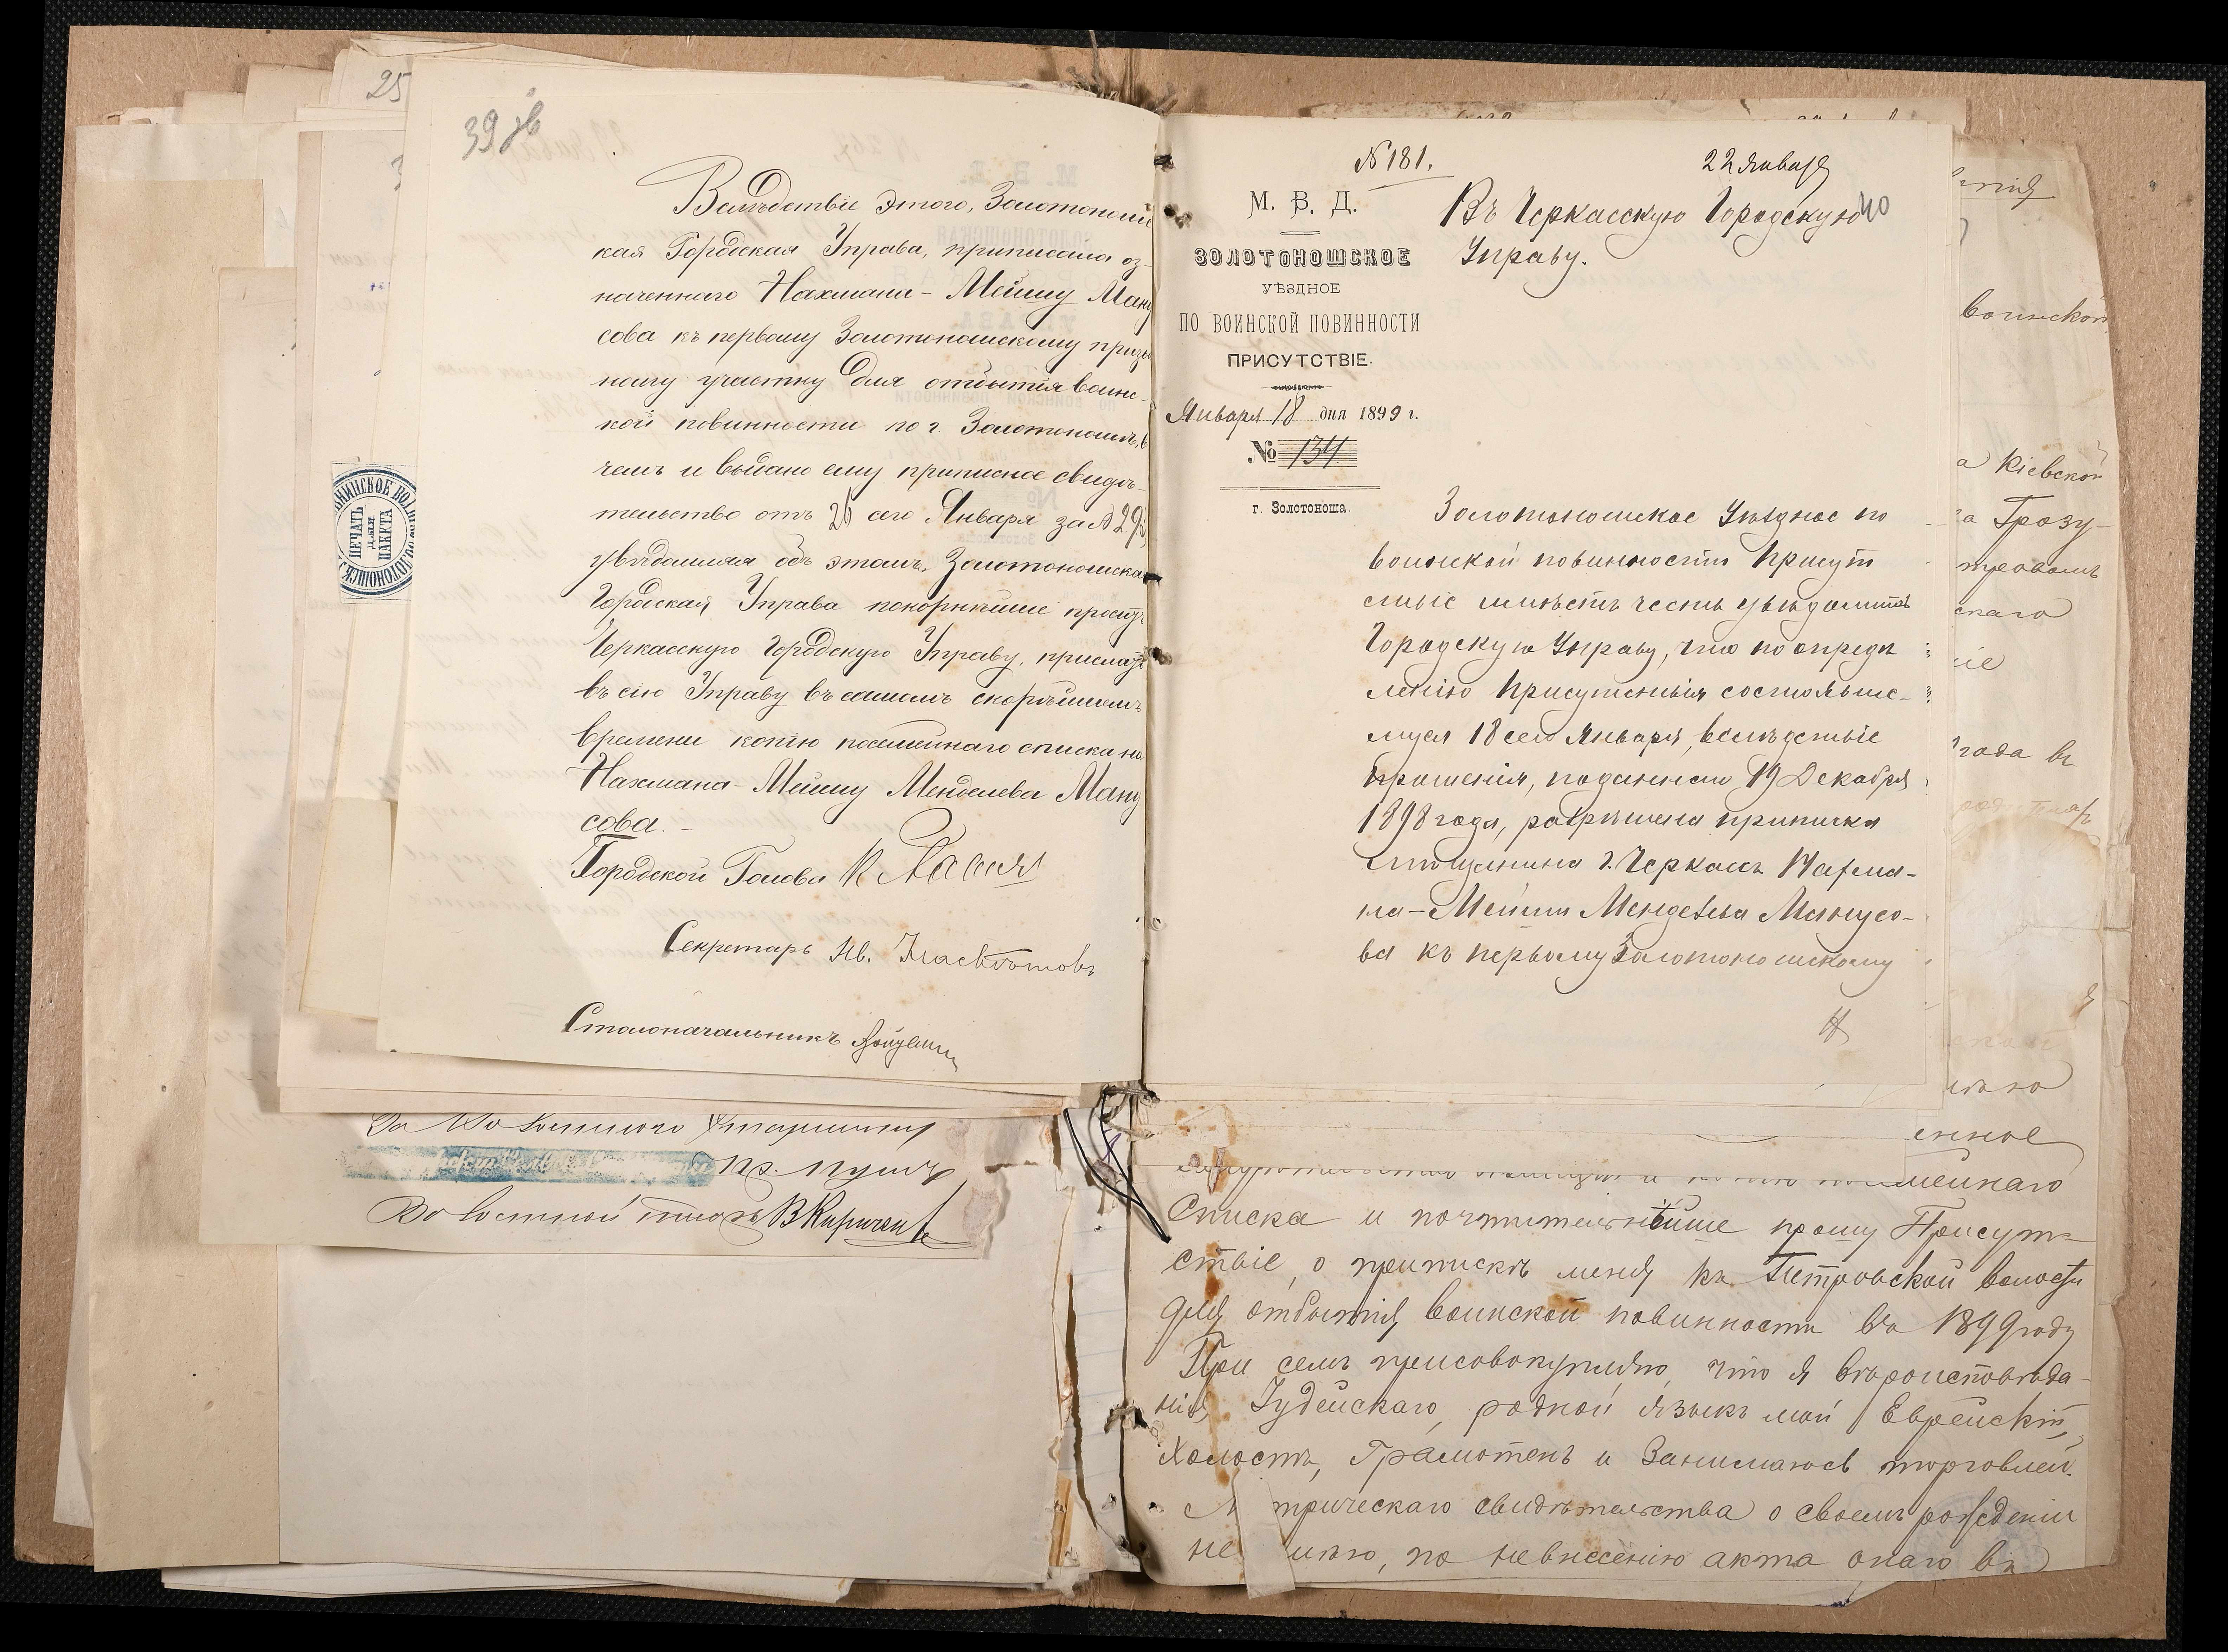 25
39 зв
Вслѣдствіе этого, Золотонош
кая Городская Управа, приписала оз-
наченнаго Нахмана-Мейшу Ману
сова къ первому Золотоношскому призы
ному участку для отбытія воинс-
кой повинности по г. Золотоношѣ, о
чемъ и выдано ему приписное свидѣ-
тельство отъ 26 сего Января за №
увѣдомляя объ этомъ, Золотоношска
Городская Управа покорнѣйше проситъ
Черкасскую Городскую Управу, прислать
въ сію Управу въ самомъ скорѣйшемъ
времени копію посемейнаго списка на
Нахмана-Мейшу Менделева Ману
сова.-
Городской Голова
Секретарь Ив.
Столоначальникъ
ПЕЧАТЬ
ДЛЯ
ПАКЕТА
Волостной В Кириченко
№ 181.
22 Января
40
М. В. Д.
ЗОЛОТОНОШСКОЕ
УѢЗДНОЕ
ПО ВОИНСКОЙ ПОВИННОСТИ
ПРИСУТСТВІЕ.
Января 18 дня 1899 г.
№ 134
г. Золотоноша
Въ Черкасскую Городскую
Управу.
Золотоношское Уѣздное по
воинской повинности Присут
ствіе имѣетъ честь увѣдомить
Городскую Управу, что по опредѣ
ленію Присутствія состоявше-
муся 18 сего Января, вслѣдствіе
прошенія, поданнаго 19 Декабря
1898 года, разрѣшена приписка
мѣщанина г. Черкассъ Нахма-
на-Мейши Менделева Манусо-
ва къ первому Золотоношскому
воинской
а Кіевской
скаго
года въ
енное
Списка и почтительнѣйше прошу Присут-
ствіе, о припискѣ меня къ Петровской волости
для отбытія воинской повинности въ 1899 году
При семъ присовокупляю, что я вѣроисповѣда-
нія Іудейскаго, родной языкъ мой Еврейскій,
Холостъ, Грамотенъ и Занимаюсь торговлей.
М трическаго свидѣтельства о своемъ рожденіи
не имѣю, по невнесенію акта онаго въ